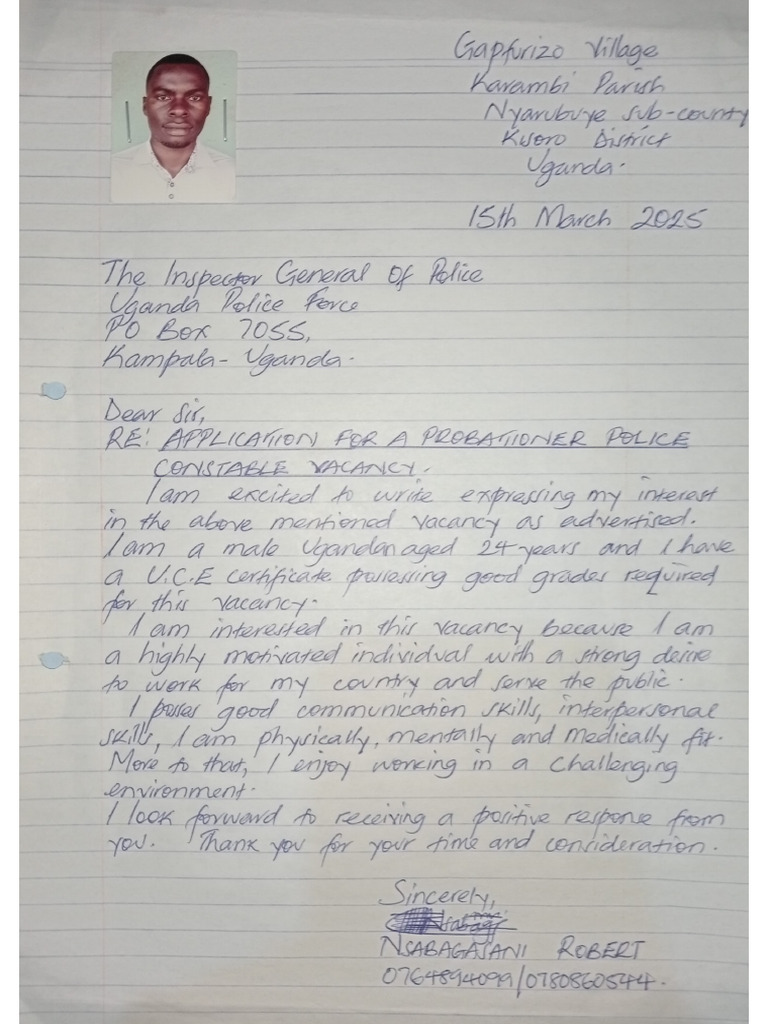 Gapfurizo Village
Karambi Parish
Nyarubuye Sub-county
Kisoro District
Uganda.
15th March 2025
The Inspector General Of Police
Uganda Police Force
PO Box 7055,
Kampala - Uganda.
Dear Sir,
RE: APPLICATION FOR A PROBATIONER POLICE
CONSTABLE VACANCY.
I am excited to write expressing my interest
in the above mentioned vacancy as advertised.
I am a male Ugandan aged 24 years and I have
a U.C.E certificate possessing good grades required
for this vacancy.
I am interested in this vacancy because I am
a highly motivated individual with a strong desire
to work for my country and serve the public.
I posses good communication skills, interpersonal
skills, I am physically, mentally and medically fit.
More to that, I enjoy working in a challenging
environment.
I look forward to receiving a positive response from
you. Thank you for your time and consideration.
Sincerely,
NSABAGASANI ROBERT
0764894099/0780860544.